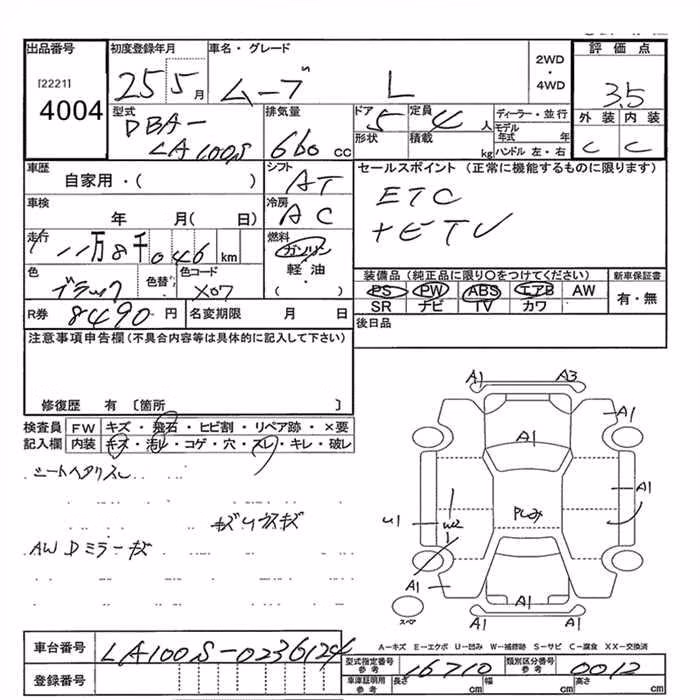 出品番号 初度登録年月 車名・グレード 2WD・4WD 評価点
[2221] 25 5月 ムーブ L 3.5
4004
型式 排気量 ドア形状 5 定員 4人 ディーラー・並行 外装 内装
DBA- 660cc 積載 kg モデル年式 年 C C
LA100S ハンドル 左・右
車歴 シフト セールスポイント（正常に機能するものに限ります）
自家用・( ) AT ETC
車検 冷房 +ETV
年 月( 日) AC
走行 燃料
11万8千046km ガソリン
色 色替 色コード 軽油・( )
ブラック X07
装備品（純正品に限り○をつけてください） 新車保証書
PS PW ABS エアB AW 有・無
SR ナビ TV カワ
R券 8490円 名変期限 月 日 後日品
注意事項申告欄（不具合内容等は具体的に記入して下さい）
修復歴 有〔箇所 〕
検査員 FW キズ・飛石・ヒビ割・リペア跡・×要
記入欄 内装 キズ・汚レ・コゲ・穴・スレ・キレ・破レ
シートヘタリスレ
AW Dミラーキズ
A1 A3
A1
A1
A1
U1 W2
A1
A1 A1 A1
スペア
A-キズ E-エクボ U-凹み W-補修跡 S-サビ C-腐食 XX-交換済
車台番号 LA100S-0236124
型式指定番号 参考 16710 類別区分番号 参考 0012
登録番号 車庫証明用 参考 長さ cm 幅 cm 高さ cm